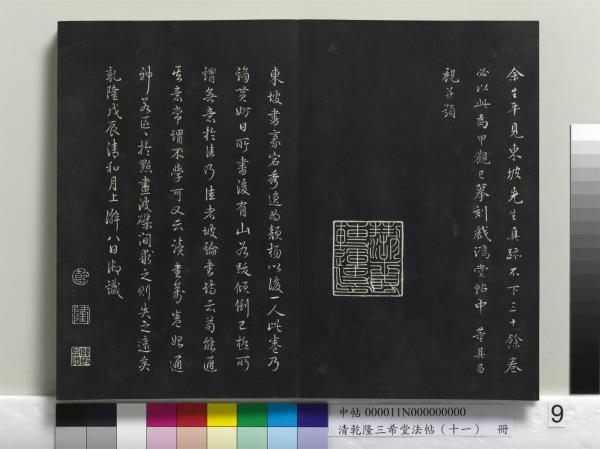 余生平見東坡先生真跡不下三十餘卷
必以此為甲觀已摹刻戲鴻堂帖中 董其昌
觀并題
東坡書豪宕秀逸為顏楊以後一人此卷乃
謫黃州日所書後有山谷跋傾倒已極所
謂無意於佳乃佳者坡論書詩云苟能通
其意常謂不學可又云讀書萬卷始通
神若區區於點畫波磔間求之則失之遠矣
乾隆戊辰清和月上澣八日御識
中帖 000011N000000000
清乾隆三希堂法帖（十一） 冊
9